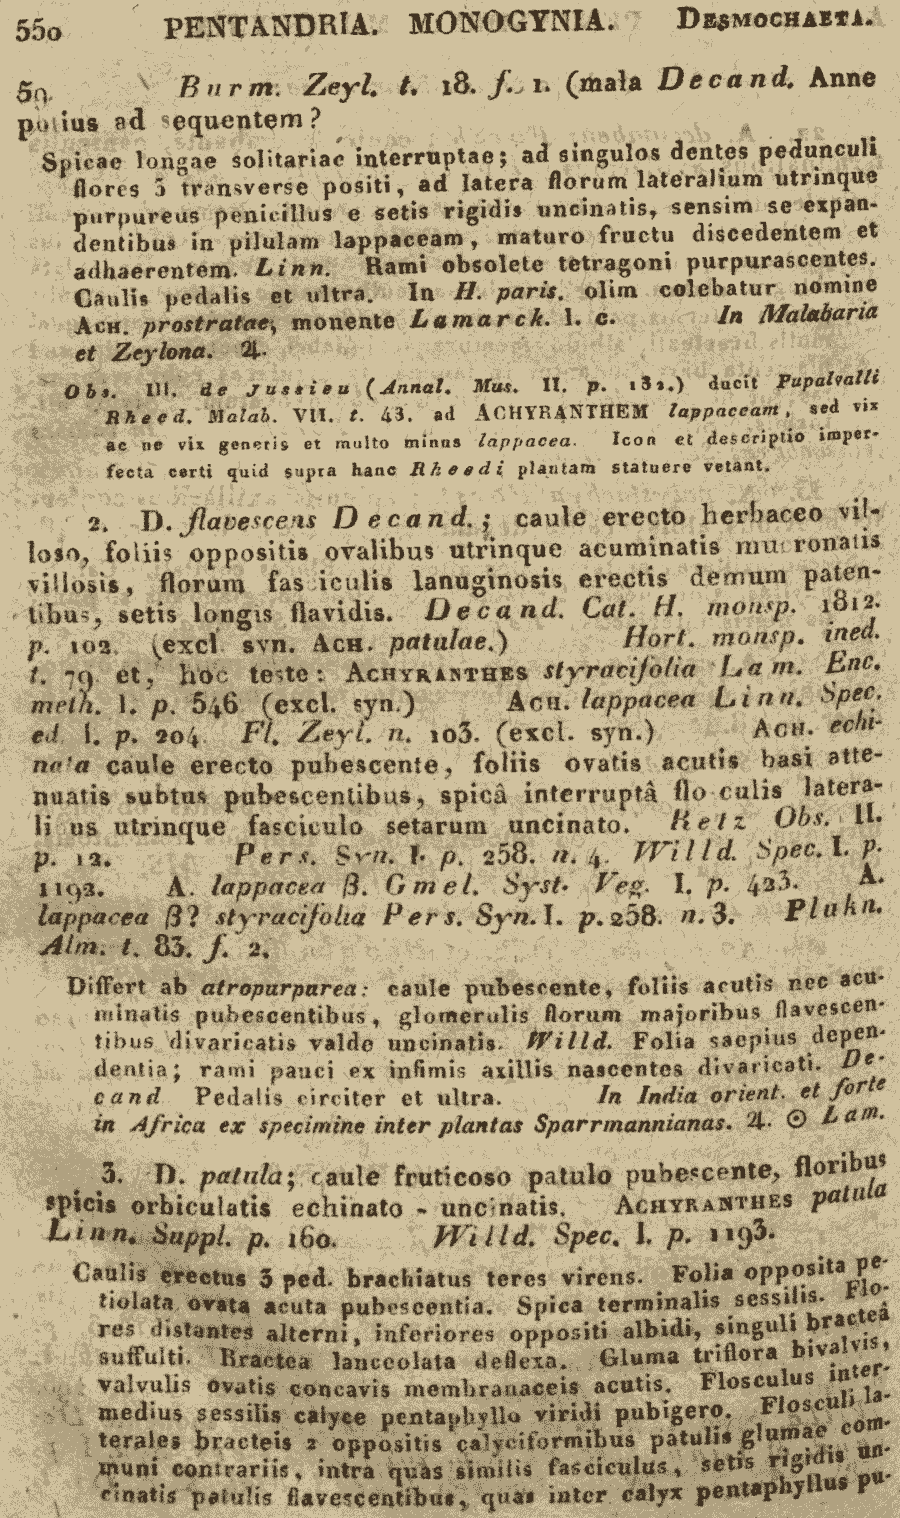 550 PENTANDRIA. MONOGYNIA. DESMOCHAETA.
59. Burm. Zeyl. t. 18. f. 1. (mala Decand. Anne
potius ad sequentem?
Spicae longae solitariae interruptae; ad singulos dentes pedunculi
flores 3 transverse positi, ad latera florum lateralium utrinque
purpureus penicillus e setis rigidis uncinatis, sensim se expan-
dentibus in pilulam lappaceam, maturo fructu discedentem et
adhaerentem. Linn. Rami obsolete tetragoni purpurascentes.
Caulis pedalis et ultra. In H. paris. olim colebatur nomine
ACH. prostratae, monente Lamarck. l. c. In Malabaria
et Zeylona. ♃.
Obs. Ill. de Jussieu (Annal. Mus. II. p. 132.) ducit Pupalvalli
Rheed. Malab. VII. t. 43. ad ACHYRANTHEM lappaceam, sed vix
ac ne vix generis et multo minus lappacea. Icon et descriptio imper-
fecta certi quid supra hanc Rheedi plantam statuere vetant.
2. D. flavescens Decand.; caule erecto herbaceo vil-
loso, foliis oppositis ovalibus utrinque acuminatis mucronatis
villosis, florum fasciculis lanuginosis erectis demum paten-
tibus, setis longis flavidis. Decand. Cat. H. monsp. 1812.
p. 102. (excl. syn. ACH. patulae.) Hort. monsp. ined.
t. 79 et, hoc teste: ACHYRANTHES styracifolia Lam. Enc.
meth. I. p. 546 (excl. syn.) ACH. lappacea Linn. Spec.
ed. I. p. 204. Fl. Zeyl. n. 103. (excl. syn.) ACH. echi-
nata caule erecto pubescente, foliis ovatis acutis basi atte-
nuatis subtus pubescentibus, spicâ interruptâ flosculis latera-
libus utrinque fasciculo setarum uncinato. Retz Obs. II.
p. 12. Pers. Syn. I. p. 258. n. 4. Willd. Spec. I. p.
1192. A. lappacea β. Gmel. Syst. Veg. I. p. 423. A.
lappacea β? styracifolia Pers. Syn. I. p. 258. n. 3. Plukn.
Alm. t. 83. f. 2.
Differt ab atropurpurea: caule pubescente, foliis acutis nec acu-
minatis pubescentibus, glomerulis florum majoribus flavescen-
tibus divaricatis valde uncinatis. Willd. Folia saepius depen-
dentia; rami pauci ex infimis axillis nascentes divaricati. De-
cand. Pedalis circiter et ultra. In India orient. et forte
in Africa ex specimine inter plantas Sparrmannianas. ♃. ☉ Lam.
3. D. patula; caule fruticoso patulo pubescente, floribus
spicis orbiculatis echinato - uncinatis. ACHYRANTHES patula
Linn. Suppl. p. 160. Willd. Spec. I. p. 1193.
Caulis erectus 3 ped. brachiatus teres virens. Folia opposita pe-
tiolata ovata acuta pubescentia. Spica terminalis sessilis. Flo-
res distantes alterni, inferiores oppositi albidi, singuli bracteâ
suffulti. Bractea lanceolata deflexa. Gluma triflora bivalvis,
valvulis ovatis concavis membranaceis acutis. Flosculus inter-
medius sessilis calyce pentaphyllo viridi pubigero. Flosculi la-
terales bracteis 2 oppositis calyciformibus patulis glumae com-
muni contrariis, intra quas similis fasciculus, setis rigidis un-
cinatis patulis flavescentibus, quas inter calyx pentaphyllus pu-